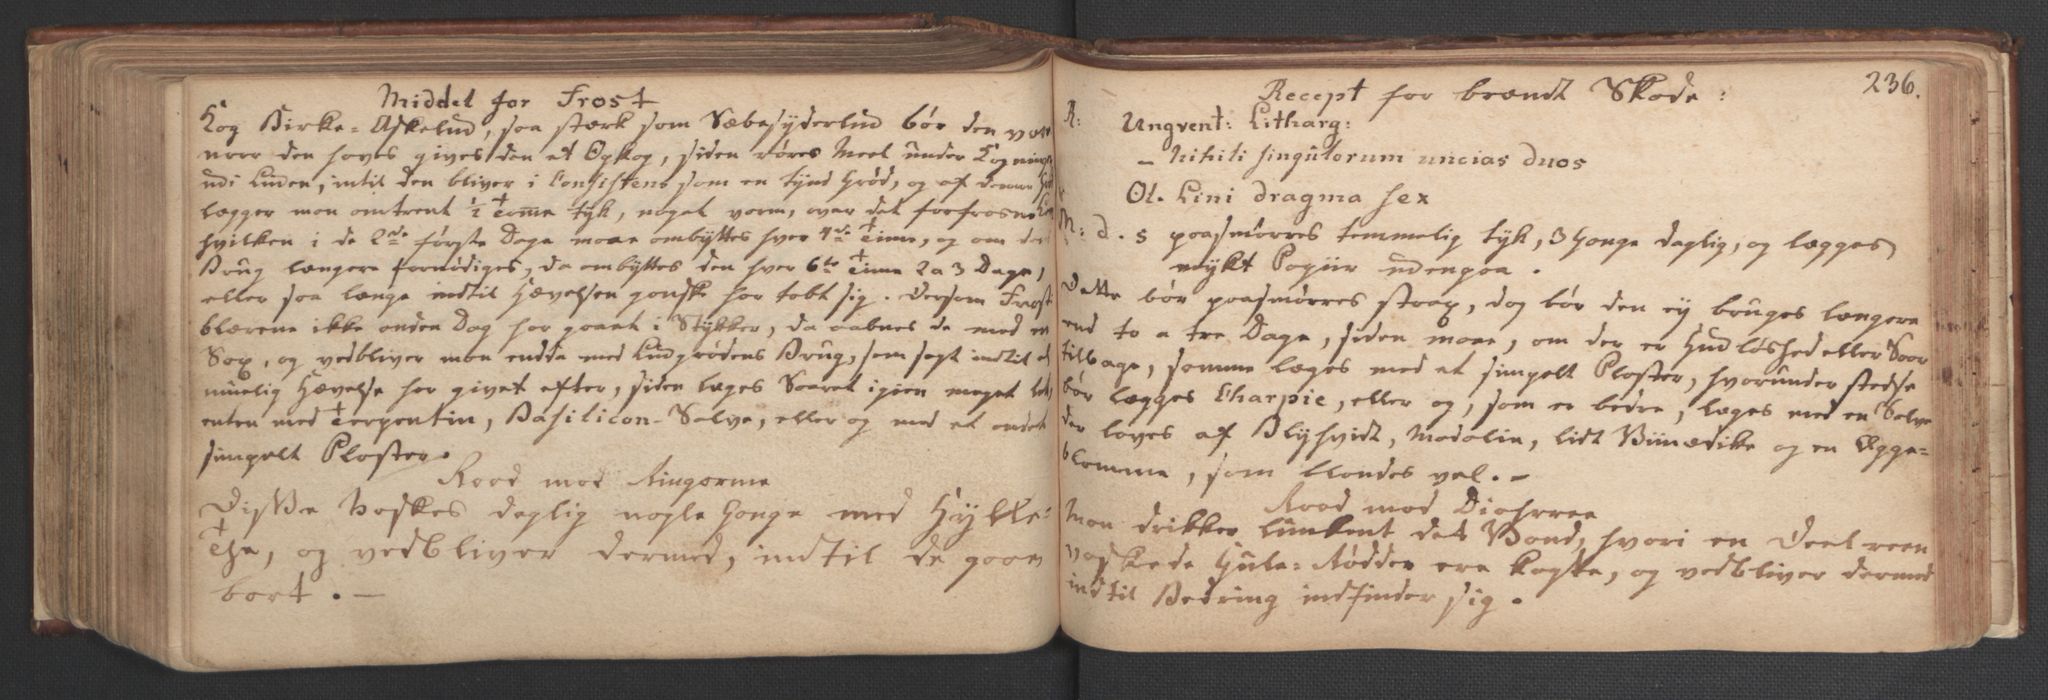 Middel for Frost
Kog Birke-Askelud, saa stærk som Sæbesyderlud bør den være
naar den haves gives den et Opkog, siden røres Meel under Kogningen
udi Luden, intil den bliver i Consistens som en tynd Grød, og af denne Grød
lægger man omtrent ½ Tomme tyk, noget varm, over det forfrosne Lem
hvilken i de 2de første Dage maae ombyttes hver 4de Time, og om dens
Brug længere fornødiges, da ombyttes den hver 6te Time 2 a 3 Dage,
eller saa længe indtil Hævelsen ganske har tabt sig. Dersom Frost
blærene ikke anden Dag har gaaet i Stykker, da aabnes de med en
Sax, og vedbliver man endda med Ludgrødens Brug, som sagt indtil al
muelig Hævelse har givet efter, siden læges Saaret igien meget let,
enten med Terpentin, Basilicon-Salve, eller og med et andet
simpelt Plaster.
Raad mod Ringorme
Disse vaskes daglig nogle Gange med Hylle-
The, og vedbliver dermed, indtil de gaae
bort. —
236.
Recept for brændt Skade:
R: Ungvent: Litharg:
— Nihili singulorum uncias duos
Ol. Lini dragma sex
M: d. s paasmørres temmelig tyk, 3 Gange daglig, og lægges
mykt Papiir udenpaa.
Dette bør paasmørres strax, dog bør den ey bruges længere
end to a tre Dage, siden maae, om der er Hudløshed eller Saar
tilbage, samme læges med et simpelt Plaster, hvorunder stedse
bør lægges Charpie, eller og, som er bedre, læges med en Salve
der laves af Blyhvidt, Madolie, lidt Viinædike og en Ægge-
blomme, som blandes vel. —
Raad mod Diahrree
Man drikker lunkent det Vand, hvori en Deel reen
vaskede Gule-Rødder ere kogte, og vedbliver dermed
indtil Bedring indfinder sig.